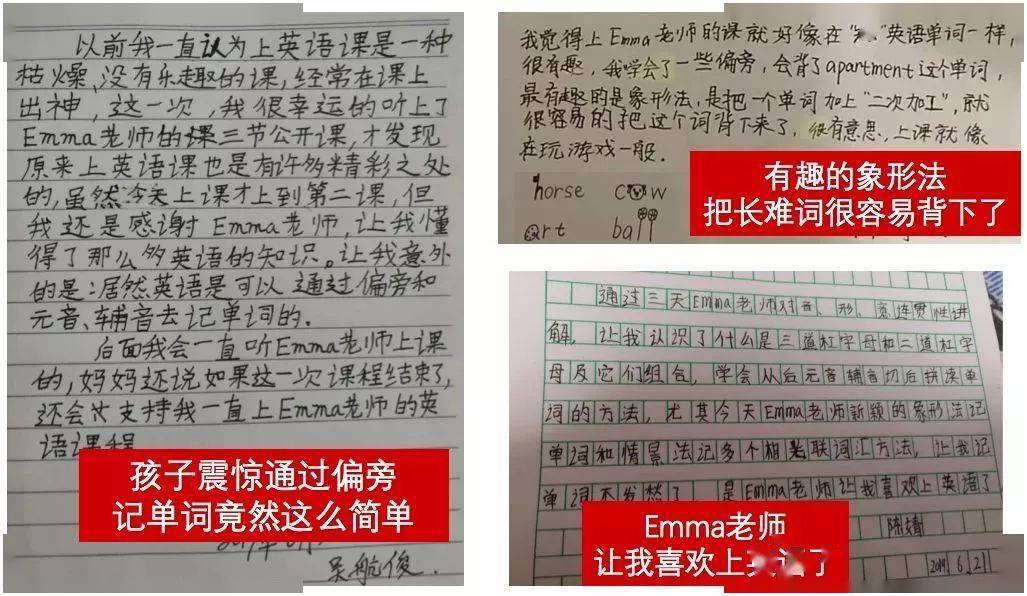 以前我一直认为上英语课是一种
枯燥、没有乐趣的课,经常在课上
出神,这一次,我很幸运的听上了
Emma老师的课三节公开课,才发现
原来上英语课也是有许多精彩之处
的,虽然今天上课才上到第二课,但
我还是感谢Emma老师,让我懂
得了那么多英语的知识。让我意外
的是:居然英语是可以通过偏旁和
元音、辅音去记单词的.
后面我会一直听Emma老师上课
的,妈妈还说如果这一次课程结束了,
还会支持我一直上Emma老师的英
语课程
吴航俊.
孩子震惊通过偏旁
记单词竟然这么简单
我觉得上Emma老师的课就好像在"英语单词一样,
很有趣,我学会了一些偏旁,会背了apartment这个单词,
最有趣的是象形法,是把一个单词加上"二次加工",就
很容易的把这个词背下来了,很有意思,上课就像
在玩游戏一般.
horse cow
art ball
有趣的象形法
把长难词很容易背下了
通过三天Emma老师对音、形、意连贯性讲
解,让我认识了什么是三道杠字母和二道杠字
母及它们组合,学会从后元音辅音切后拼读单
词的方法,尤其今天Emma老师新颖的象形法记
单词和情景法记多个相关联词汇方法,让我记
单词不发愁了,是Emma老师让我喜欢上英语了
陈婧
2019 6 21
Emma老师
让我喜欢上英语了